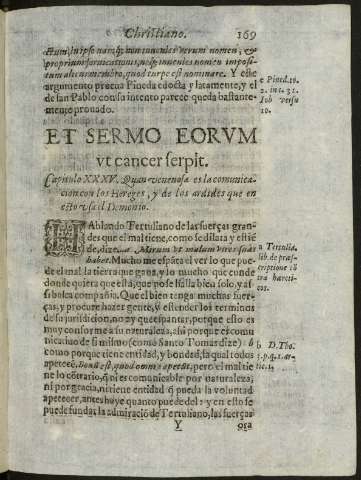 Christiano. 169
ctum, in ipso namq; non inuenies verum nomen; &
proprium fornicationis, neq; inuenies nomen imposi-
tum alicui membro, quod turpe est nominare. Y este
argumento prueua Pineda docta y latamente, y el
de san Pablo con su intento parece queda bastante-
mente prouado.
e Pined. to.
2. in c. 31.
Iob versu
10.
ET SERMO EORVM
vt cancer serpit.
Capitulo XXXV. Quan venenosa es la comunica-
cion con los Hereges, y de los ardides que en
esto vsa el Demonio.
HAblando Tertuliano de las fuerças gran-
des que el mal tiene, como se dilata y estiē-
de, dize: a Mirum vt malum vires suas
habet. Mucho me espāta el ver lo que pue-
de el mal la tierra que gana, y lo mucho que cunde
donde quiera que està, que no se halla bien solo, y as-
si busca compañia. Que el bien tenga muchas fuer-
ças, y procure hazer gente, y estender los terminos
de su jurisdicion, no ay que espantar, porque esto es
muy conforme a su naturaleza, assi porque es comu-
nicatiuo de si mismo (como Santo Tomas dize) b
como porque tiene entidad, y bondad, la qual todos
apetecē, Bonū est, quod omnia apetūt, pero el mal tie
ne lo cōtrario, q̄ ni es comunicable por naturaleza,
ni por gracia, ni tiene entidad q̄ pueda la voluntad
apetecer, antes huye quanto puede del: y en esto se
puede fundar la admiraciō de Tertuliano, las fuerças
a Tertulia.
lib. de præs-
criptione cō
tra hæreti-
cos.
b D. Tho.
1. p. q. 5. ar-
tic. 1.
Y